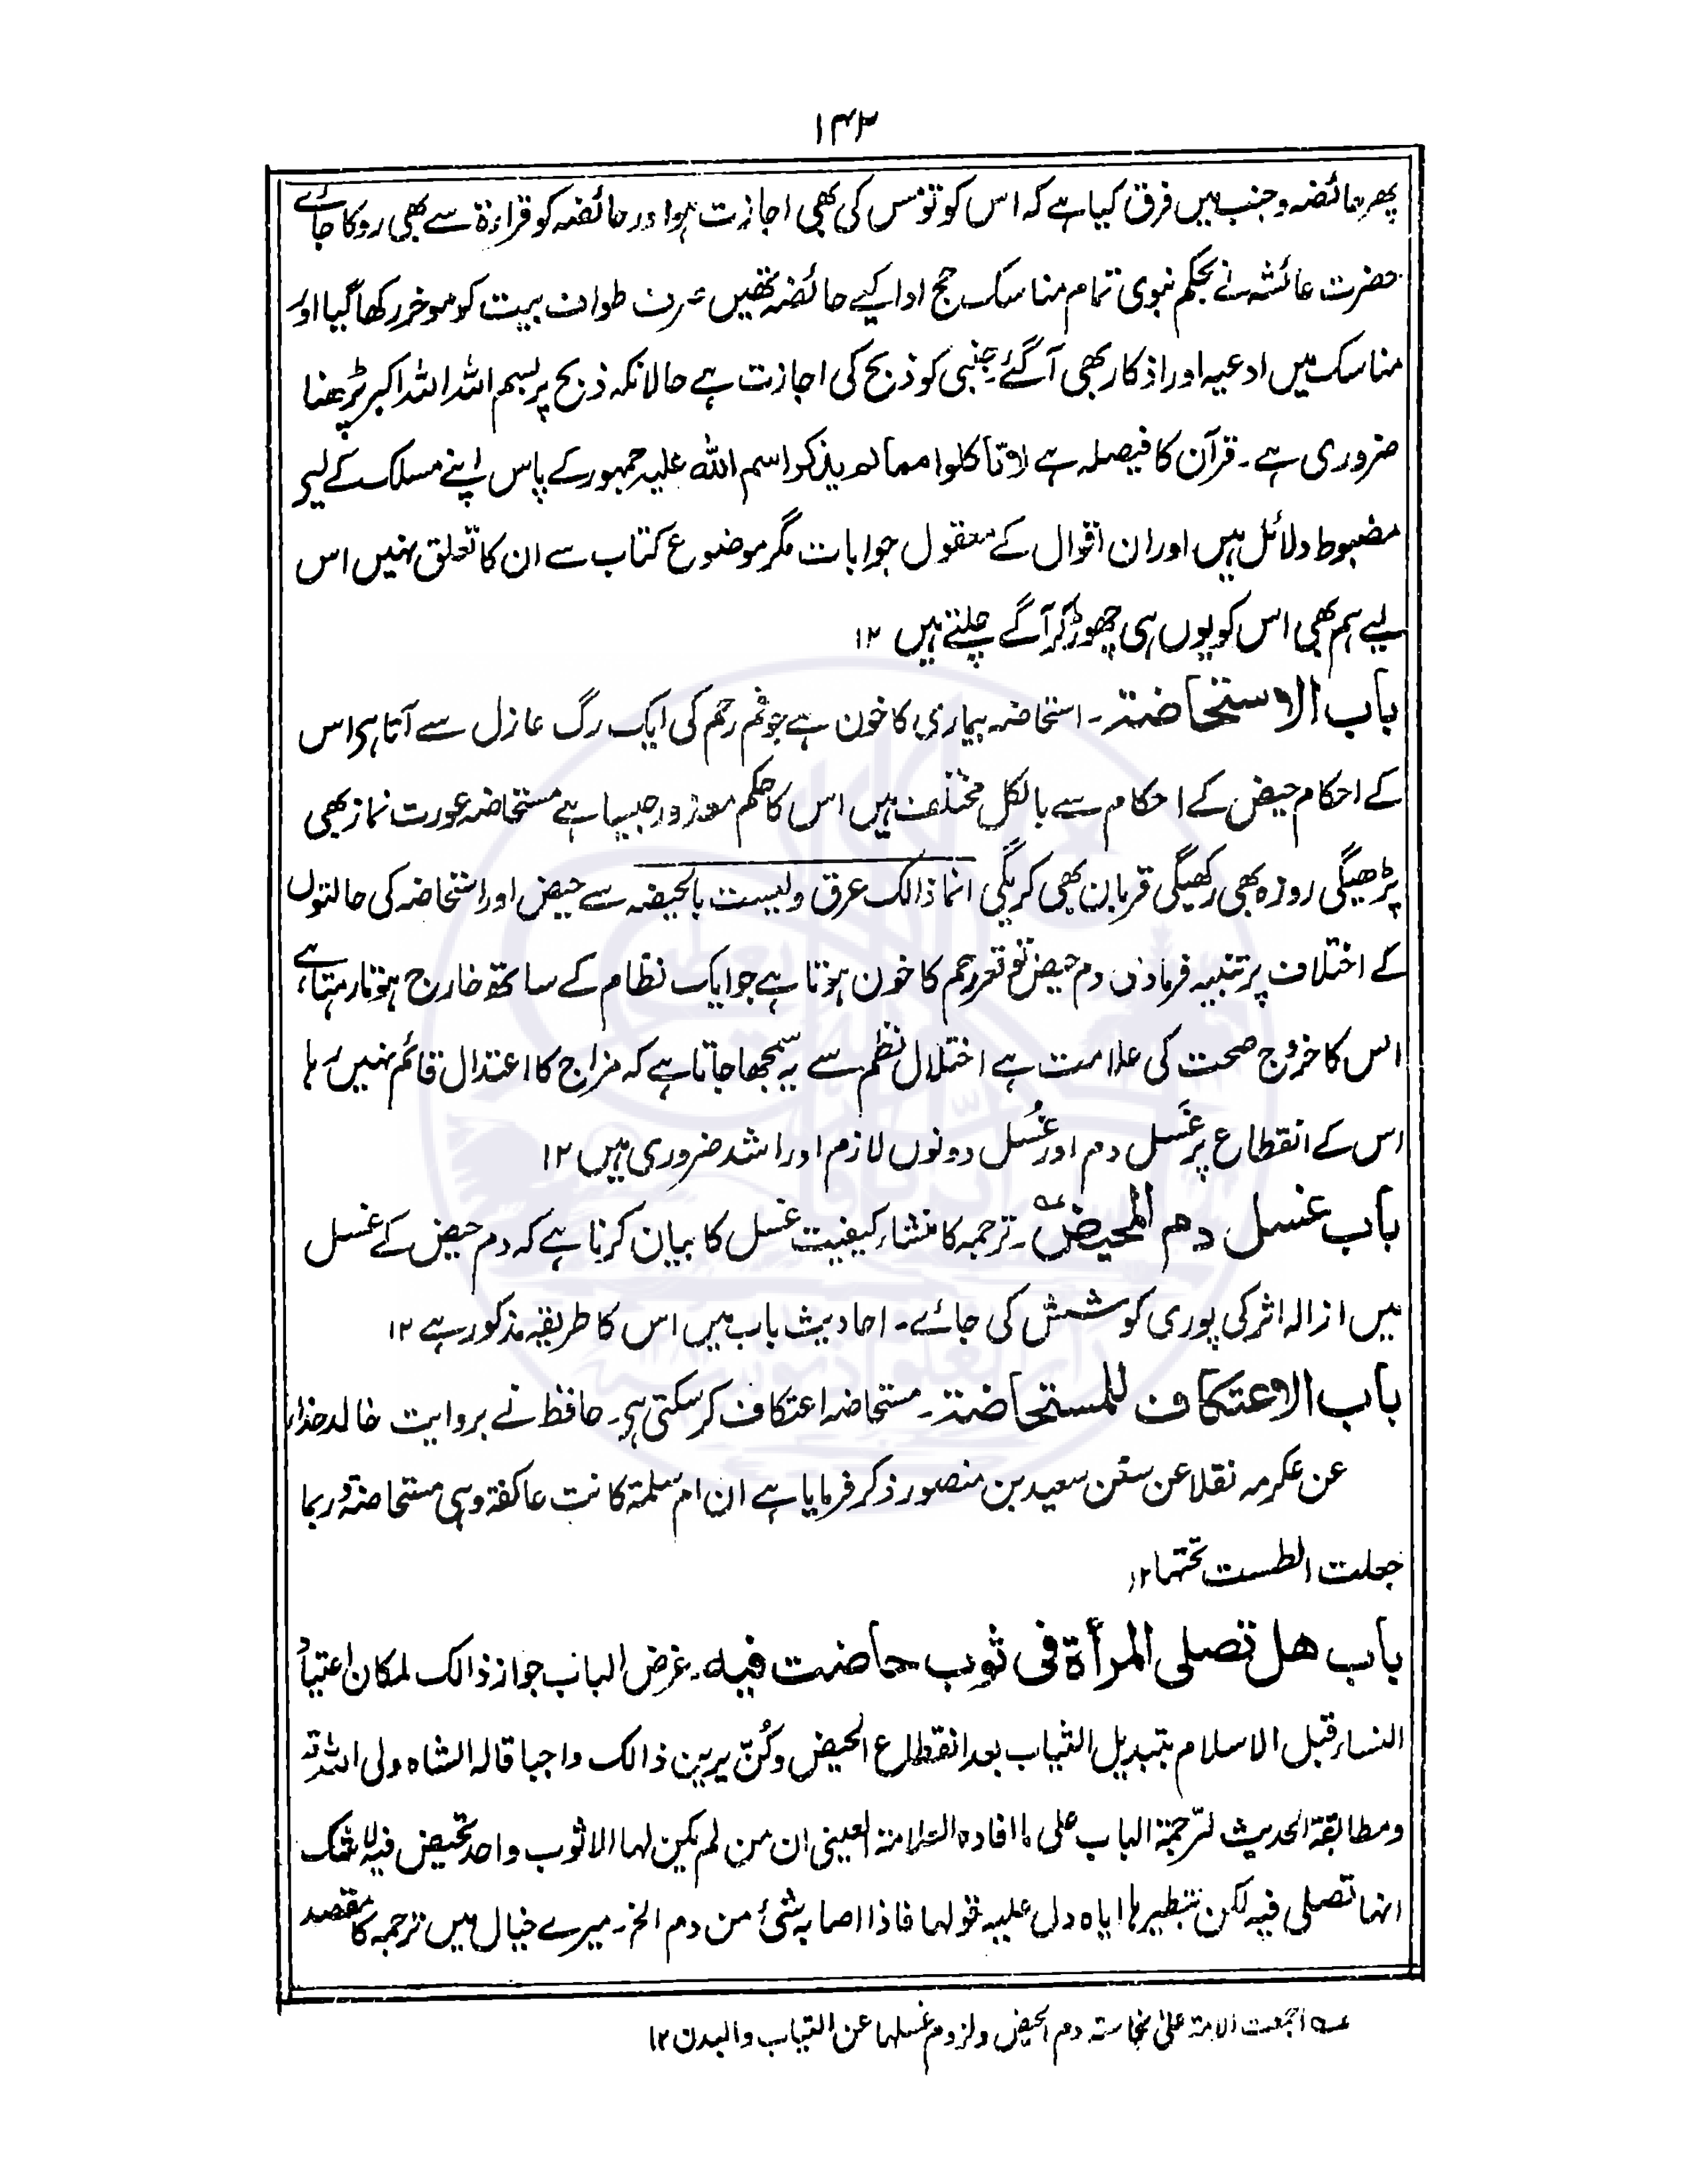 ۱۴۲
پھر حائضہ و جنب میں فرق کیا ہے کہ اس کو تو مس کی بھی اجازت ہو اور حائضہ کو قراءۃ سے بھی روکا جائے
حضرت عائشہ نے بحکم نبوی تمام مناسک حج ادا کیے حائضہ تھیں صرف طواف بیت کو موخر رکھا گیا اور
مناسک میں ادعیہ اور اذکار بھی آگئے جنبی کو ذبح کی اجازت ہے حالانکہ ذبح پر بسم اللہ اللہ اکبر پڑھنا
ضروری ہے۔ قرآن کا فیصلہ ہے لا تاکلوا مما لم یذکر اسم اللہ علیہ جمہور کے پاس اپنے مسلک کے لیے
مضبوط دلائل ہیں اور ان اقوال کے معقول جوابات مگر موضوع کتاب سے ان کا تعلق نہیں اس
لیے ہم بھی اس کو یوں ہی چھوڑ کر آگے چلتے ہیں ۱۲
باب الاستحاضۃ۔ استحاضہ بیماری کا خون ہے جو فم رحم کی ایک رگ عازل سے آتا ہے اس
کے احکام حیض کے احکام سے بالکل مختلف ہیں اس کا حکم معذور جیسا ہے مستحاضہ عورت نماز بھی
پڑھیگی روزہ بھی رکھیگی قربان بھی کریگی انما ذالک عرق ولیست بالحیضہ سے حیض اور استحاضہ کی حالتوں
کے اختلاف پر تنبیہ فرمادی دم حیض تو قعر رحم کا خون ہوتا ہے جو ایک نظام کے ساتھ خارج ہوتا رہتا ہے،
اس کا خروج صحت کی علامت ہے اختلال نظم سے یہ سمجھا جاتا ہے کہ مزاج کا اعتدال قائم نہیں رہا
اس کے انقطاع پر غَسل دم اور غُسل دونوں لازم اور اشد ضروری ہیں ۱۲
باب غسل دم المحیض؎۔ ترجمہ کا منشاء کیفیت غسل کا بیان کرنا ہے کہ دم حیض کے غسل
میں ازالہ اثر کی پوری کوشش کی جائے۔ احادیث باب میں اس کا طریقہ مذکور ہے ۱۲
باب الاعتکاف للمستحاضۃ۔ مستحاضہ اعتکاف کر سکتی ہے۔ حافظ نے بروایت خالد حذاء
عن عکرمہ نقلا عن سنن سعید بن منصور ذکر فرمایا ہے ان ام سلمۃ کانت عاکفۃ وہی مستحاضۃ وربما
جعلت الطست تحتہا ۱۲
باب ھل تصلی المرأۃ فی ثوب حاضت فیہ۔ غرض الباب جواز ذالک لمکان اعتیاد
النساء قبل الاسلام بتبدیل الثیاب بعد انقطاع الحیض وکُنّ یرین ذالک واجبا قالہ الشاہ ولی اللہ
ومطابقۃ الحدیث لترجمۃ الباب علی ما افادہ العلامۃ العینی ان من لم یکن لہا الا ثوب واحد تحیض فیہ لا شک
انہا تصلی فیہ لکن بتطہیرہا ایاہ دل علیہ قولہا فاذا اصابہ شئ من دم الخ۔ میرے خیال میں ترجمہ کا مقصد
؎ اجمعت الامۃ علی نجاسۃ دم الحیض ولزوم غسلہا عن الثیاب والبدن ۱۲